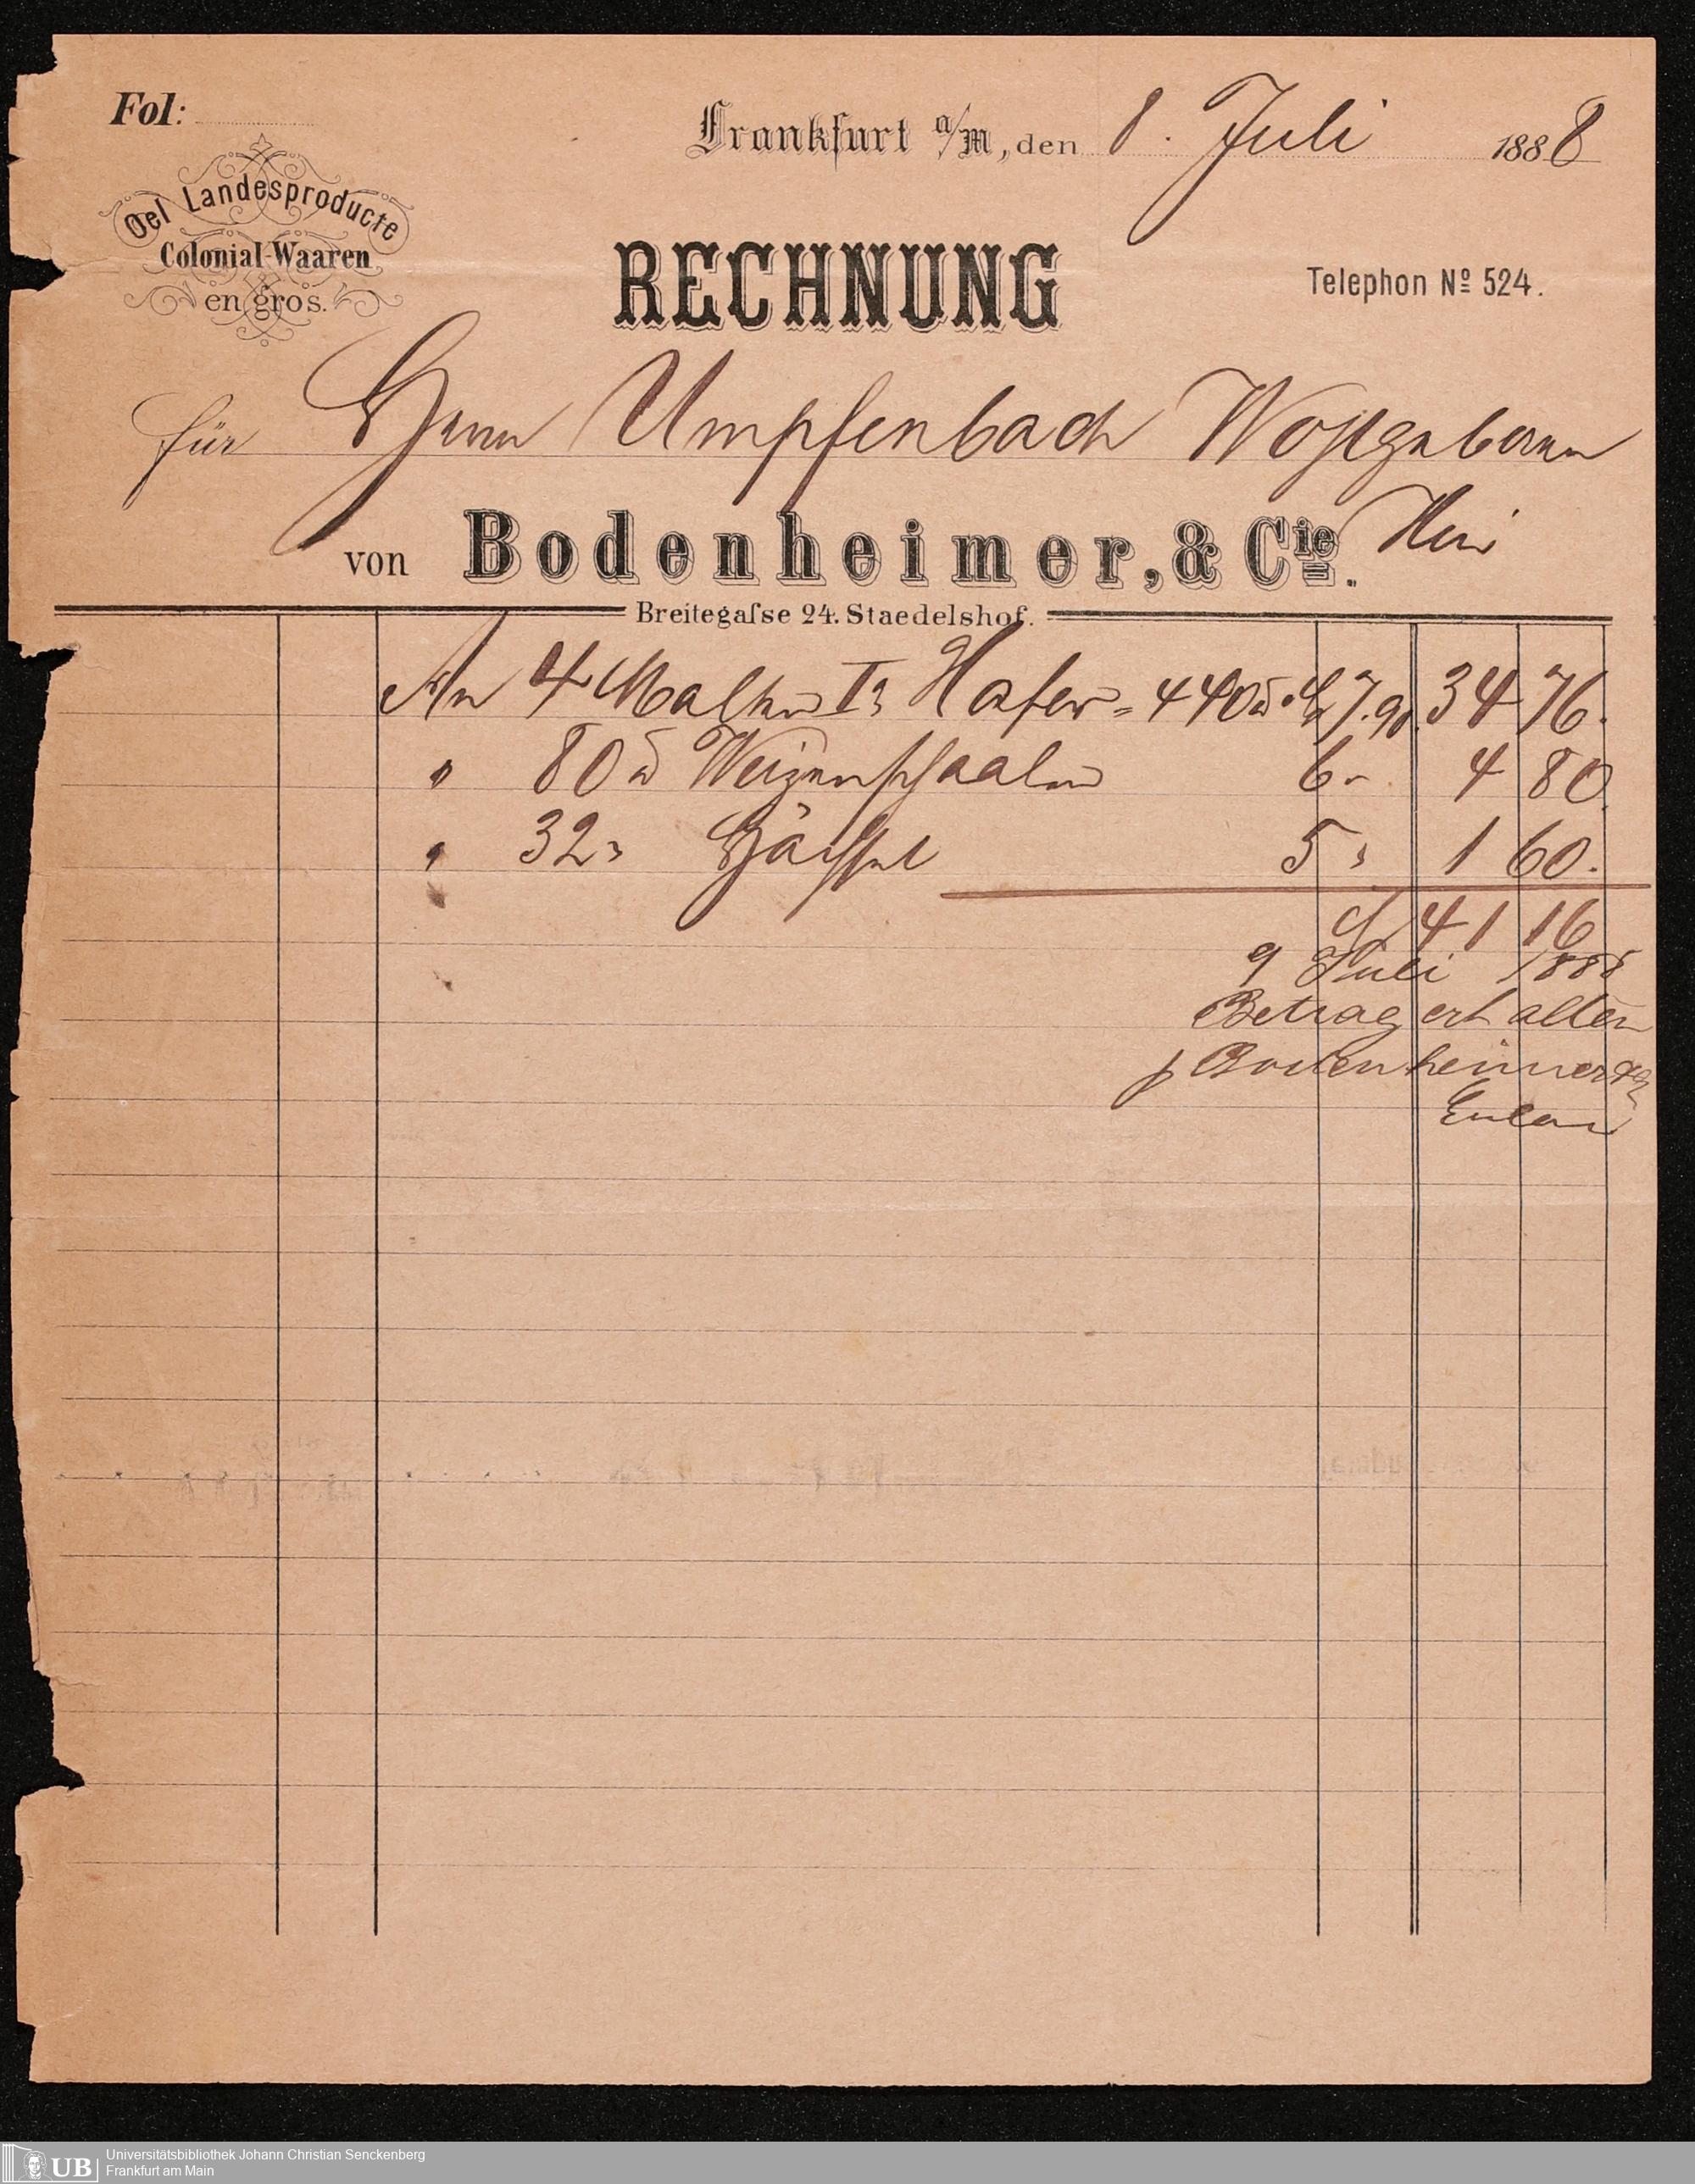 Fol:
Frankfurt a/M, den 8. Juli 1888
Oel Landesproducte
Colonial-Waaren
en gros.
RECHNUNG
Telephon Nº 524.
für Herrn Umpfenbach Wohlgeboren
Hier
von Bodenheimer, & Cie.
Breitegaſse 24. Staedelshof.
An 4 Malter Ia Hafer = 440 ℔ ℳ 7.90. 34 76.
" 80 ℔ Weizenschaalen 6 - 4 80.
" 32 " Häcksel 5 " 1 60.
ℳ 41 16
9 Juli 1888
Betrag erhalten
p Bodenheimer & Cie